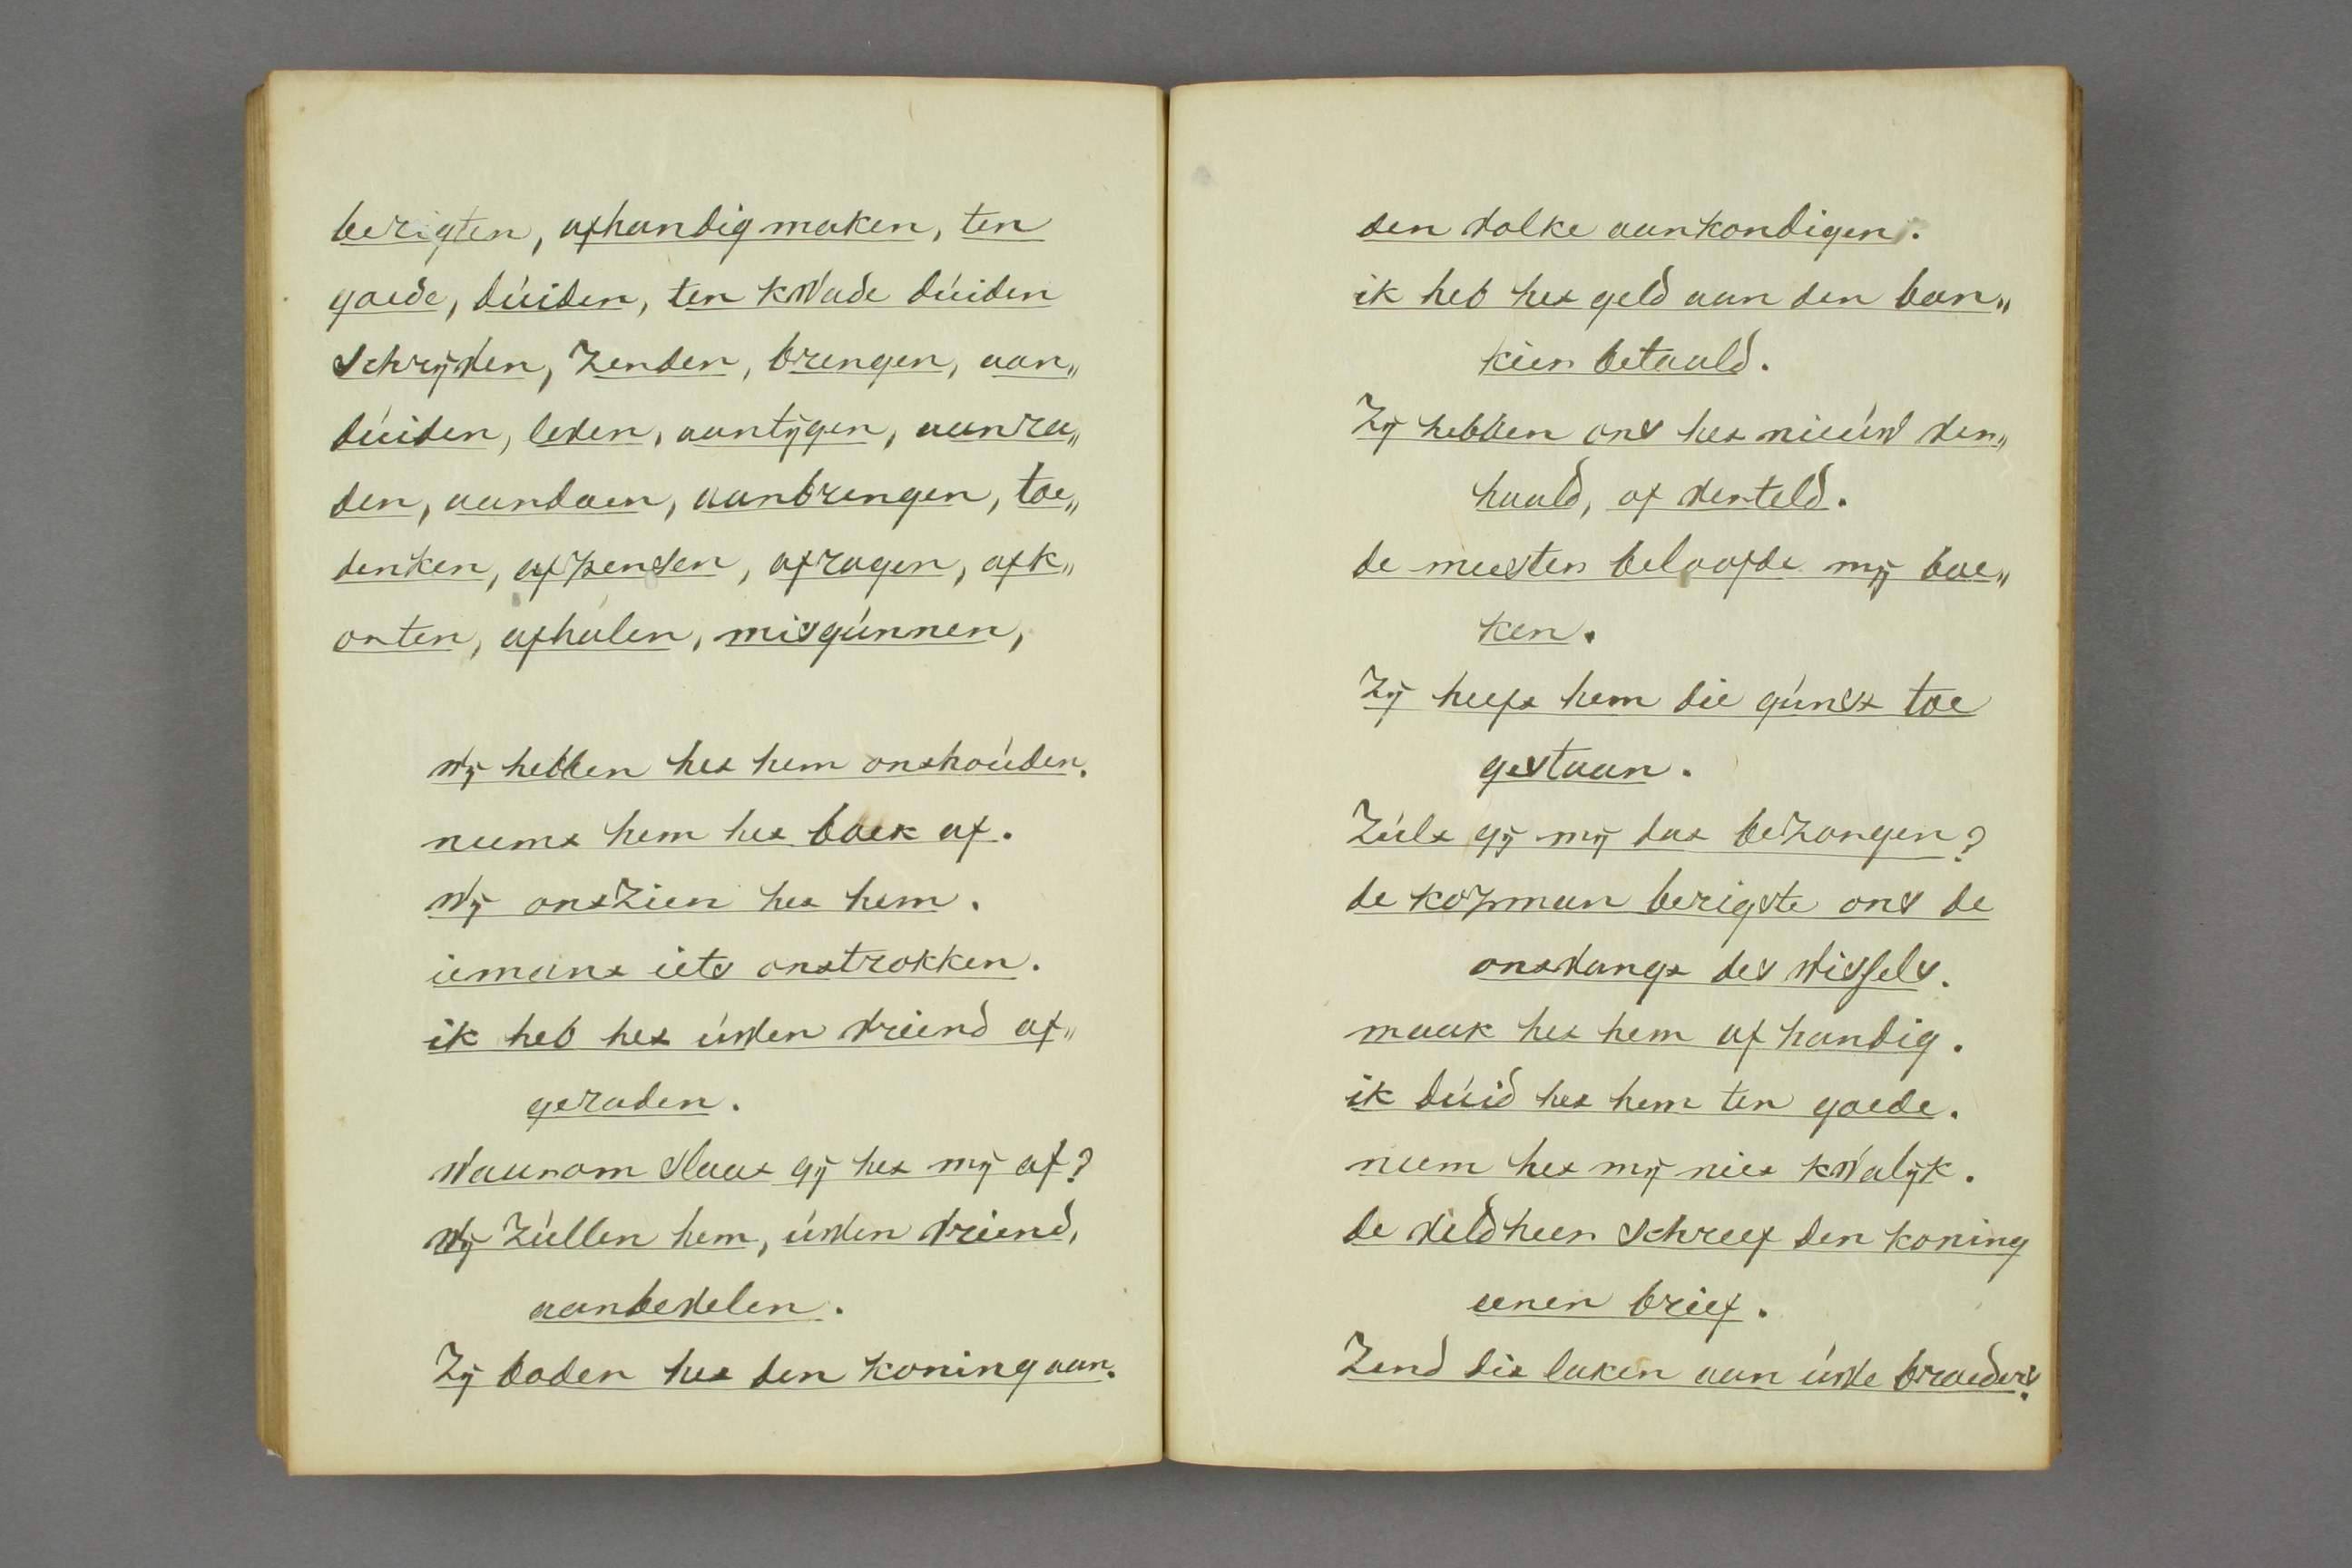 berigten, afhandig maken, ten
goede, dúiden, ten kwade dúiden
schrijven, zenden, brengen, aan„
dúiden, leven, aantijgen, aanra„
den, aandoen, aanbrengen, toe„
denken, afpersen, afragen, afk„
orten, afhalen, misgúnnen,
wij hebben het hem onthoúden.
neemt hem het boek af.
wij ontzien het hem.
iemant iets onttrokken.
ik heb het úwen vriend af„
geraden.
waarom slaat gij het mij af?
wij zúllen hem, úwen vriend,
aanbevelen.
zij boden het den koning aan.
den volke aankondigen.
ik heb het geld aan den ban„
kier betaald.
zij hebben ons het nieúw ver„
haald, of verteld.
de meester beloofde mij boe„
ken.
zij heeft hem die gúnst toe
gestaan.
zúlt gij mij dat bezorgen?
de kopman berigtte ons de
ontvangt des wissels.
maak het hem af handig.
ik dúid het hem ten goede.
neem het mij niet kwalijk.
de veldheer schreef den koning
eenen brief.
zend dit laken aan úwe broeders.